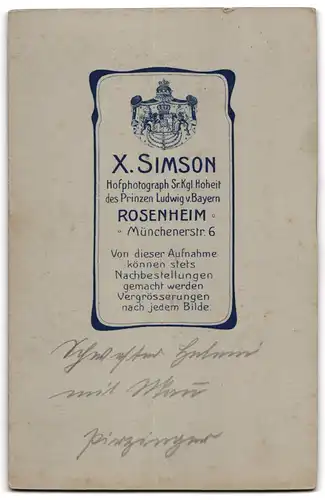 X. SIMSON
Hofphotograph Sr. Kgl. Hoheit
des Prinzen Ludwig v. Bayern
ROSENHEIM
Münchenerstr. 6
Von dieser Aufnahme
können stets
Nachbestellungen
gemacht werden
Vergrösserungen
nach jedem Bilde.
Schwester
mit
Pirzinger